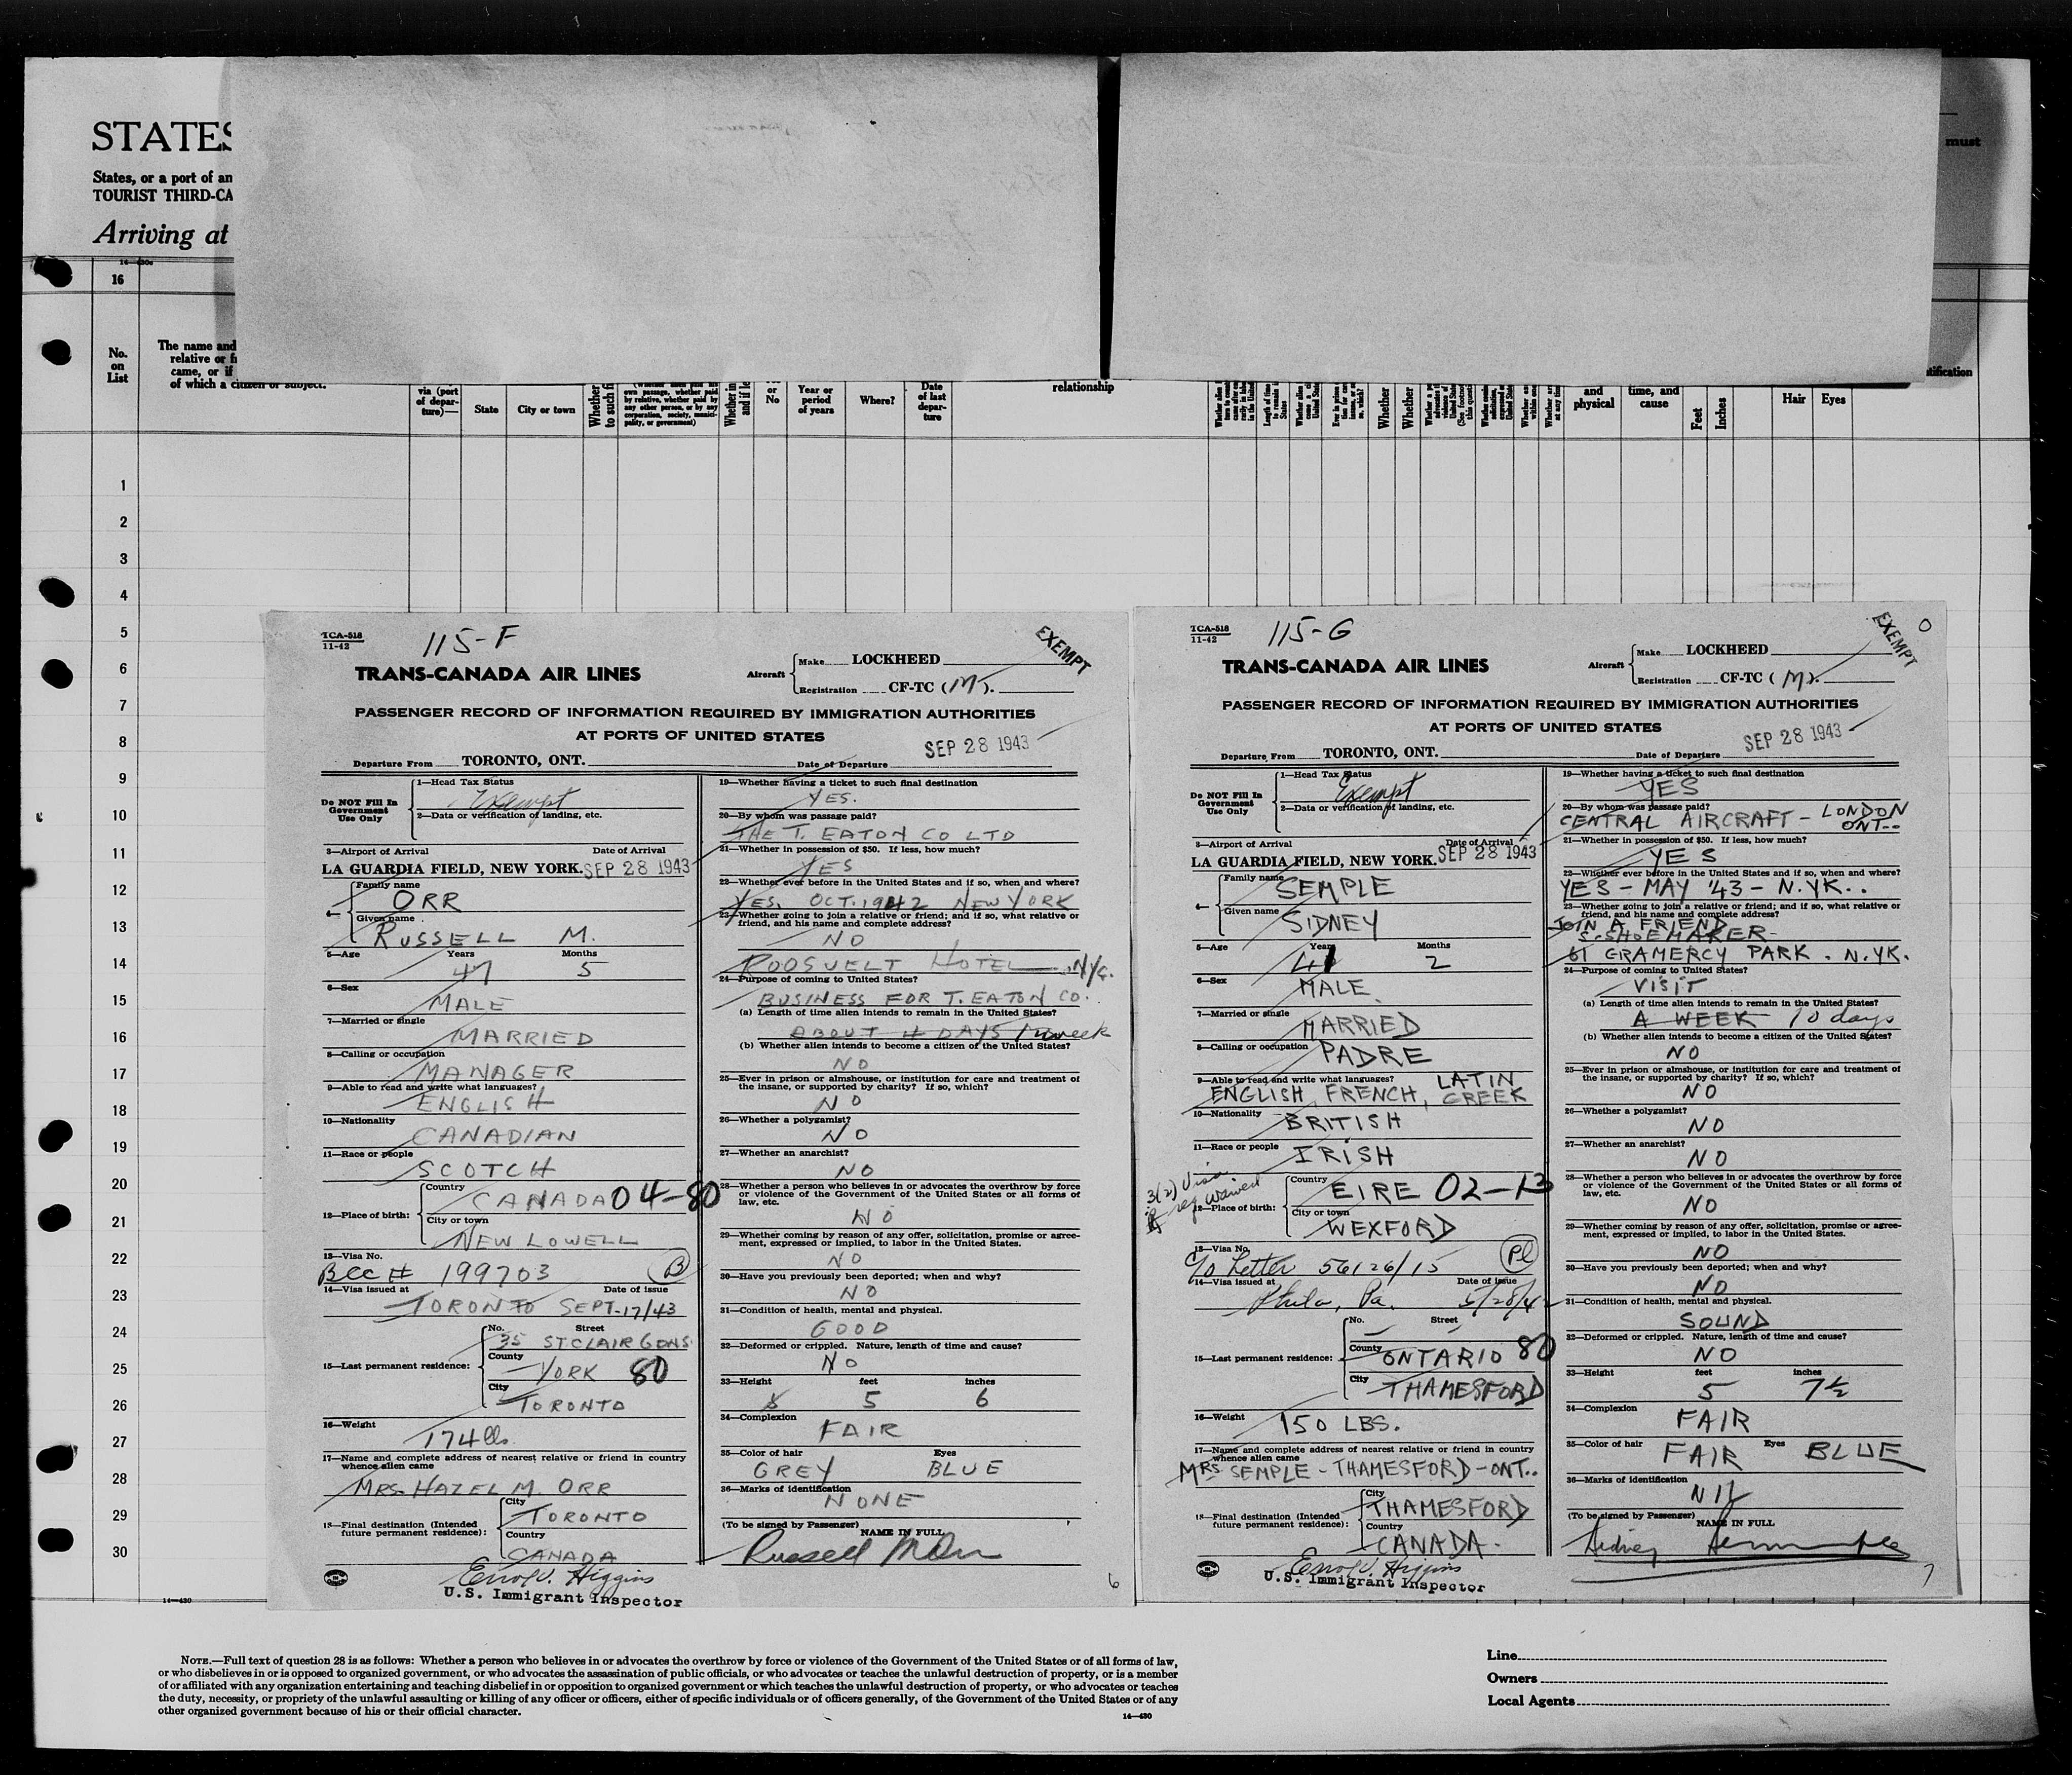 STATES
States, or a port of an
TOURIST THIRD-CA
must
Arriving at
16
No. on List
The name and
relative or f
came, or if
of which a citizen or subject.
via (port of departure)—
State
City or town
Whether
to such f
own passage, whether paid by relative, whether paid by any other person, or by any corporation, society, municipality, or government)
Whether in
and if le
or No
Year or period of years
Where?
Date of last departure
relationship
Whether
Whether
and physical
time, and cause
Feet
Inches
Hair
Eyes
1
2
3
4
5
6
7
8
9
10
11
12
13
14
15
16
17
18
19
20
21
22
23
24
25
26
27
28
29
30
TCA-518
11-42
115-F
EXEMPT
TRANS-CANADA AIR LINES
Aircraft
Make LOCKHEED
Registration CF-TC (M).
PASSENGER RECORD OF INFORMATION REQUIRED BY IMMIGRATION AUTHORITIES
AT PORTS OF UNITED STATES
SEP 28 1943
Departure From TORONTO, ONT. Date of Departure
Do NOT Fill In Government Use Only
1—Head Tax Status
Exempt
2—Data or verification of landing, etc.
3—Airport of Arrival Date of Arrival
LA GUARDIA FIELD, NEW YORK. SEP 28 1943
4— Family name
ORR
Given name
RUSSELL M.
5—Age Years Months
47 5
6—Sex
MALE
7—Married or single
MARRIED
8—Calling or occupation
MANAGER
9—Able to read and write what languages?
ENGLISH
10—Nationality
CANADIAN
11—Race or people
SCOTCH
12—Place of birth:
Country
CANADA 04-80
City or town
NEW LOWELL
13—Visa No.
BCC # 199703 B
14—Visa issued at Date of issue
TORONTO SEPT-17/43
15—Last permanent residence:
No. Street
35 ST CLAIR GDNS.
County
YORK 80
City
TORONTO
16—Weight
174 lbs.
17—Name and complete address of nearest relative or friend in country
whence alien came
MRS. HAZEL M. ORR
18—Final destination (Intended future permanent residence):
City
TORONTO
Country
CANADA
Errol V. Higgins
U.S. Immigrant Inspector
19—Whether having a ticket to such final destination
YES.
20—By whom was passage paid?
THE T. EATON CO LTD
21—Whether in possession of $50. If less, how much?
YES
22—Whether ever before in the United States and if so, when and where?
YES. OCT. 1942 NEW YORK
23—Whether going to join a relative or friend; and if so, what relative or
friend, and his name and complete address?
NO
ROOSVELT HOTEL N.Y.C.
24—Purpose of coming to United States?
BUSINESS FOR T. EATON CO.
(a) Length of time alien intends to remain in the United States?
ABOUT 4 DAYS 1 week
(b) Whether alien intends to become a citizen of the United States?
NO
25—Ever in prison or almshouse, or institution for care and treatment of
the insane, or supported by charity? If so, which?
NO
26—Whether a polygamist?
NO
27—Whether an anarchist?
NO
28—Whether a person who believes in or advocates the overthrow by force
or violence of the Government of the United States or all forms of
law, etc.
NO
29—Whether coming by reason of any offer, solicitation, promise or agree-
ment, expressed or implied, to labor in the United States.
NO
30—Have you previously been deported; when and why?
NO
31—Condition of health, mental and physical.
GOOD
32—Deformed or crippled. Nature, length of time and cause?
NO
33—Height feet inches
5 6
34—Complexion
FAIR
35—Color of hair Eyes
GREY BLUE
36—Marks of identification
NONE
(To be signed by Passenger) NAME IN FULL
Russell M Orr
6
TCA-518
11-42
115-G
EXEMPT
TRANS-CANADA AIR LINES
Aircraft
Make LOCKHEED
Registration CF-TC (M).
PASSENGER RECORD OF INFORMATION REQUIRED BY IMMIGRATION AUTHORITIES
AT PORTS OF UNITED STATES
SEP 28 1943
Departure From TORONTO, ONT. Date of Departure
Do NOT Fill In Government Use Only
1—Head Tax Status
Exempt
2—Data or verification of landing, etc.
3—Airport of Arrival Date of Arrival
LA GUARDIA FIELD, NEW YORK. SEP 28 1943
4— Family name
SEMPLE
Given name
SIDNEY
5—Age Years Months
41 2
6—Sex
MALE
7—Married or single
MARRIED
8—Calling or occupation PADRE
9—Able to read and write what languages? LATIN
ENGLISH, FRENCH, GREEK
10—Nationality
BRITISH
11—Race or people
IRISH
3(2) Visa
req waived
12—Place of birth:
Country
EIRE 02-13
City or town
WEXFORD
13—Visa No.
C/O Letter 56126/15 Pl
14—Visa issued at Date of issue
Phila, Pa. 5/28/4
15—Last permanent residence:
No. Street
County
ONTARIO 80
City
THAMESFORD
16—Weight
150 LBS.
17—Name and complete address of nearest relative or friend in country
whence alien came
MRS SEMPLE - THAMESFORD - ONT..
18—Final destination (Intended future permanent residence):
City
THAMESFORD
Country
CANADA.
Errol V. Higgins
U.S. Immigrant Inspector
19—Whether having a ticket to such final destination
YES
20—By whom was passage paid?
CENTRAL AIRCRAFT - LONDON ONT--
21—Whether in possession of $50. If less, how much?
YES
22—Whether ever before in the United States and if so, when and where?
YES - MAY '43 - N.YK..
23—Whether going to join a relative or friend; and if so, what relative or
friend, and his name and complete address?
JOIN A FRIEND
S. SHOEMAKER -
61 GRAMERCY PARK. N.YK.
24—Purpose of coming to United States?
VISIT
(a) Length of time alien intends to remain in the United States?
A WEEK 10 days
(b) Whether alien intends to become a citizen of the United States?
NO
25—Ever in prison or almshouse, or institution for care and treatment of
the insane, or supported by charity? If so, which?
NO
26—Whether a polygamist?
NO
27—Whether an anarchist?
NO
28—Whether a person who believes in or advocates the overthrow by force
or violence of the Government of the United States or all forms of
law, etc.
NO
29—Whether coming by reason of any offer, solicitation, promise or agree-
ment, expressed or implied, to labor in the United States.
NO
30—Have you previously been deported; when and why?
NO
31—Condition of health, mental and physical.
SOUND
32—Deformed or crippled. Nature, length of time and cause?
NO
33—Height feet inches
5 7½
34—Complexion
FAIR
35—Color of hair FAIR Eyes BLUE
36—Marks of identification
NIL
(To be signed by Passenger) NAME IN FULL
Sidney Semple
7
14—430
NOTE.—Full text of question 28 is as follows: Whether a person who believes in or advocates the overthrow by force or violence of the Government of the United States or of all forms of law,
or who disbelieves in or is opposed to organized government, or who advocates the assassination of public officials, or who advocates or teaches the unlawful destruction of property, or is a member
of or affiliated with any organization entertaining and teaching disbelief in or opposition to organized government or which teaches the unlawful destruction of property, or who advocates or teaches
the duty, necessity, or propriety of the unlawful assaulting or killing of any officer or officers, either of specific individuals or of officers generally, of the Government of the United States or of any
other organized government because of his or their official character.
14—430
Line
Owners
Local Agents